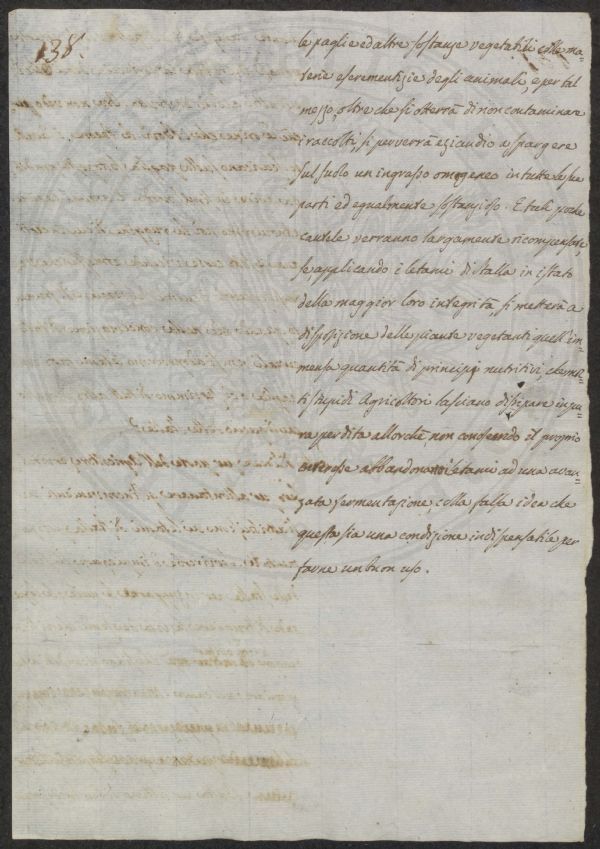 138.
le paglie ed altre sostanze vegetabili colle ma-
terie escrementizie degli animali, e per tal
mezzo, oltre che si otterrà di non contaminare
i raccolti, si perverrà eziandio a spargere
sul suolo un ingrasso omogeneo in tutte le sue
parti ed egualmente sostanzioso. E tali poche
cautele verranno largamente ricompensate,
se, applicando i letami di stalla in istato
della maggior loro integrità, si metterà a
disposizione delle piante vegetanti quell'im-
mensa quantità di principj nutritivi, che mol-
ti stupidi Agricoltori lasciano dissipare in pu-
ra perdita allorchè, non conoscendo il proprio
interesse abbandonano i letami ad una avan-
zata fermentazione, colla falsa idea che
questa sia una condizione indispensabile per
farne un buon uso.